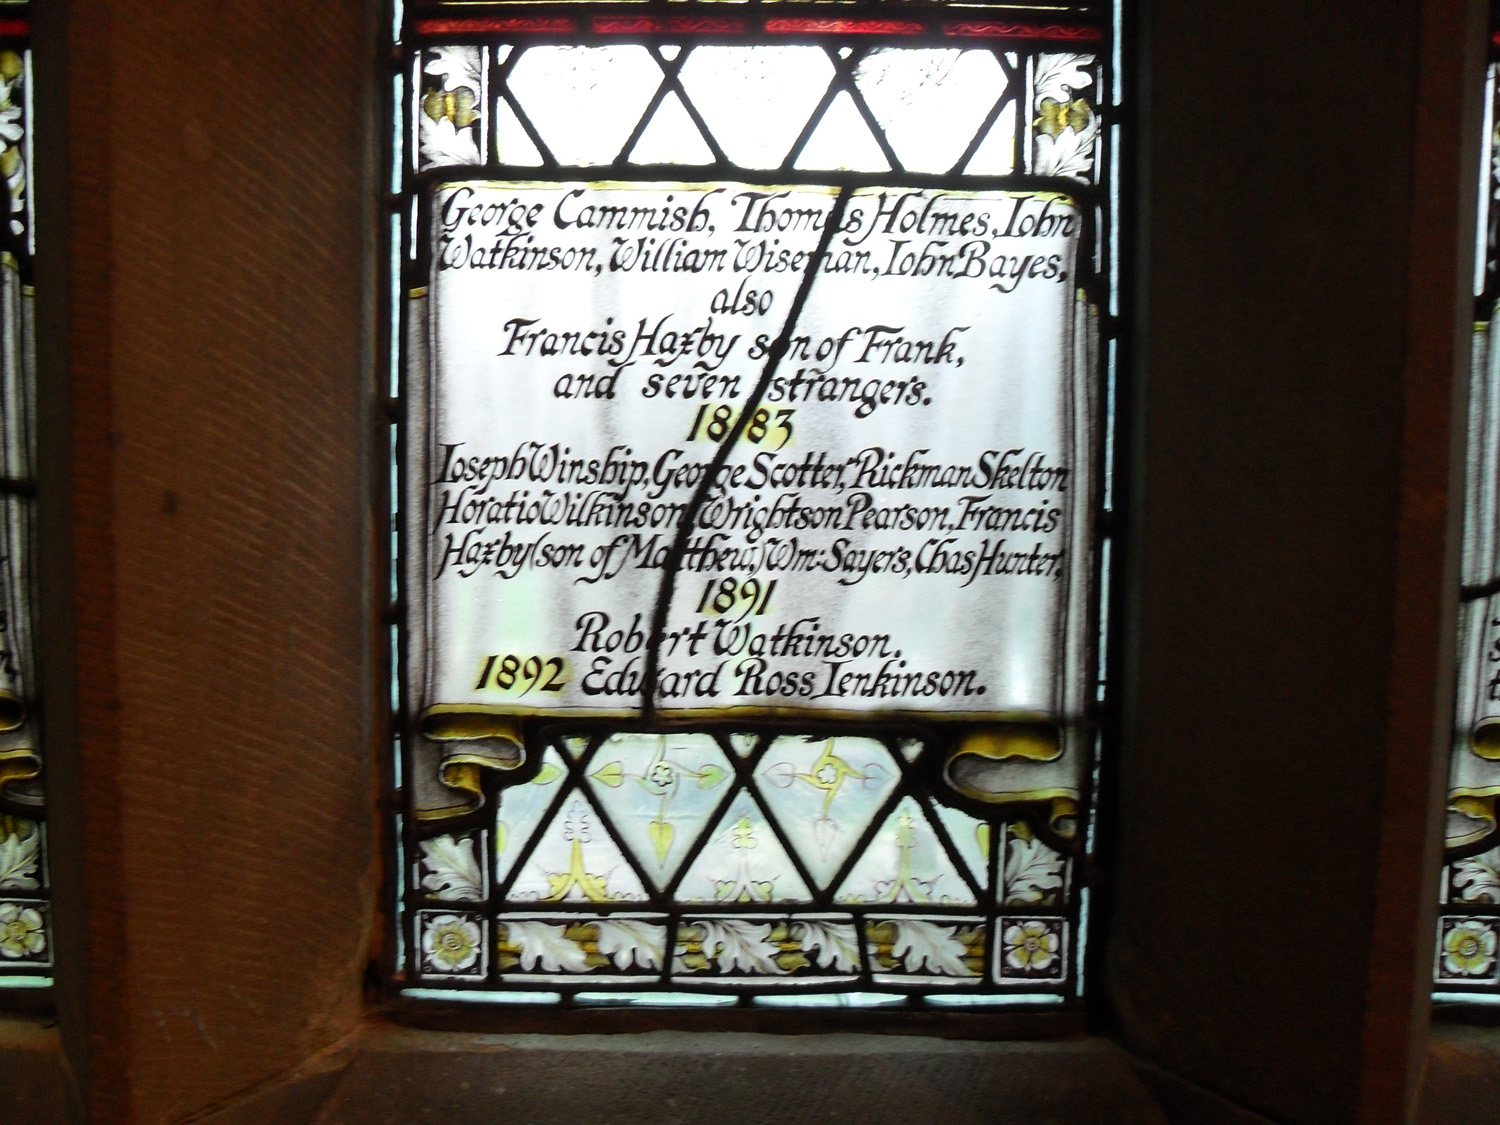 George Cammish, Thomas Holmes, Iohn
Watkinson, William Wiseman, Iohn Bayes,
also
Francis Haxby son of Frank,
and seven strangers.
1883
Ioseph Winship, George Scotter, Rickman Skelton
Horatio Wilkinson, Wrightson Pearson, Francis
Haxby (son of Matthew,) Wm: Sayers, Chas Hunter,
1891
Robert Watkinson.
1892 Edward Ross Ienkinson.